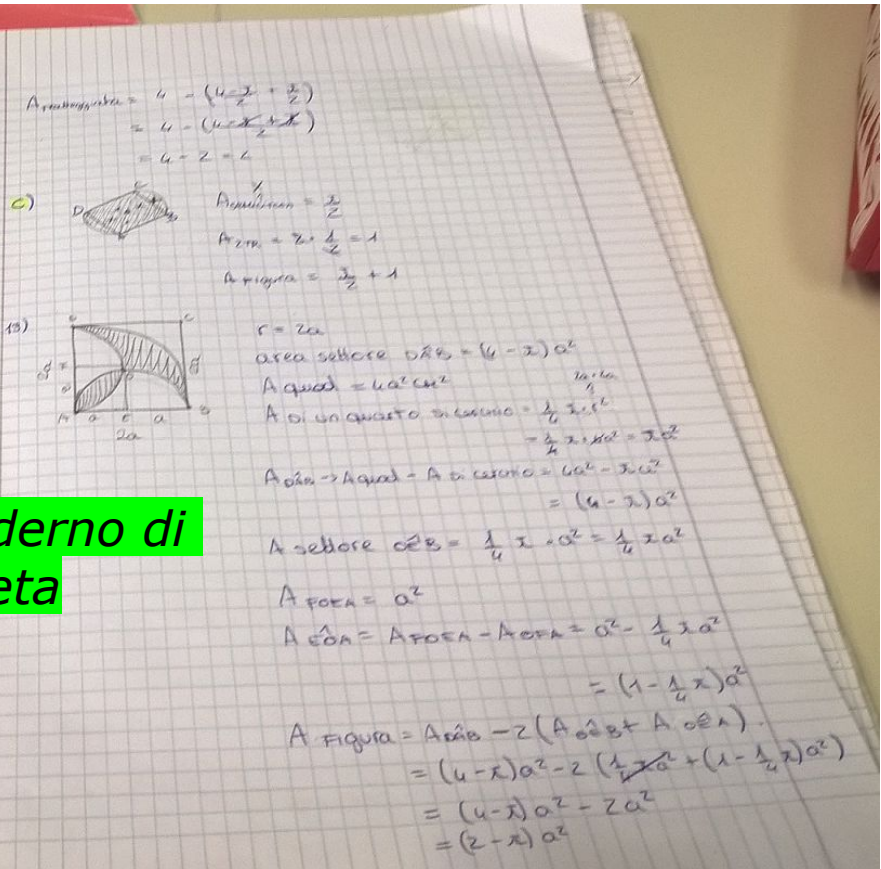 = 4 - (4-π/2 + π/2)
= 4 - (4-π+π/2)
= 4 - 2 = 2
C)
= π/2
= 2 · 1/2 = 1
A figura = π/2 + 1
13)
C
r = 2a
area settore DÂB = (4 - π) a²
A quad = 4a² cm²
2a · 2a
A di un quarto di cerchio = 1/4 π · r²
= 1/4 π · 4a² = πa²
A DÂB -> A quad - A di cerchio = 4a² - πa²
= (4 - π) a²
A a E a B
2a
derno di
eta
A settore OÊB = 1/4 π · a² = 1/4 πa²
A FOEA = a²
A EÔA = A FOEA - A OFA = a² - 1/4 πa²
= (1 - 1/4 π) a²
A Figura = A DÂB - 2 (A OÊB + A OÊA)
= (4-π) a² - 2 (1/4 πa² + (1 - 1/4 π) a²)
= (4-π) a² - 2a²
= (2-π) a²